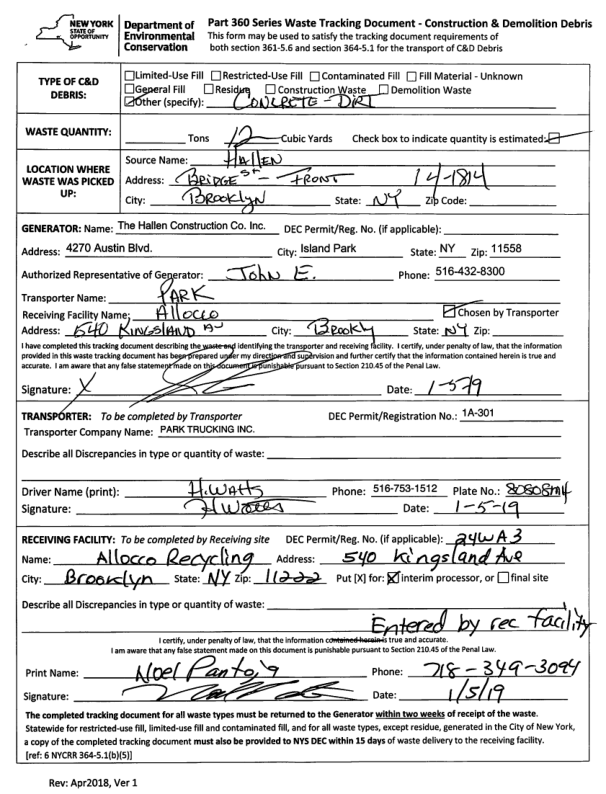 NEW YORK STATE OF OPPORTUNITY
Department of Environmental Conservation
Part 360 Series Waste Tracking Document - Construction & Demolition Debris
This form may be used to satisfy the tracking document requirements of
both section 361-5.6 and section 364-5.1 for the transport of C&D Debris
TYPE OF C&D DEBRIS:
Limited-Use Fill Restricted-Use Fill Contaminated Fill Fill Material - Unknown
General Fill Residue Construction Waste Demolition Waste
Other (specify): CONCRETE - DIRT
WASTE QUANTITY: Tons 12 Cubic Yards Check box to indicate quantity is estimated:
LOCATION WHERE WASTE WAS PICKED UP:
Source Name: HALLEN
Address: BRIDGE ST - FRONT 14-1814
City: BROOKLYN State: NY Zip Code:
GENERATOR: Name: The Hallen Construction Co. Inc. DEC Permit/Reg. No. (if applicable):
Address: 4270 Austin Blvd. City: Island Park State: NY Zip: 11558
Authorized Representative of Generator: John E. Phone: 516-432-8300
Transporter Name: PARK
Receiving Facility Name: Allocco Chosen by Transporter
Address: 540 KINGSLAND AV City: Brookly State: NY Zip:
I have completed this tracking document describing the waste and identifying the transporter and receiving facility. I certify, under penalty of law, that the information
provided in this waste tracking document has been prepared under my direction and supervision and further certify that the information contained herein is true and
accurate. I am aware that any false statement made on this document is punishable pursuant to Section 210.45 of the Penal Law.
Signature: X Date: 1-5-19
TRANSPORTER: To be completed by Transporter DEC Permit/Registration No.: 1A-301
Transporter Company Name: PARK TRUCKING INC.
Describe all Discrepancies in type or quantity of waste:
Driver Name (print): H. WATTS Phone: 516-753-1512 Plate No.: 80808M4
Signature: H Watts Date: 1-5-19
RECEIVING FACILITY: To be completed by Receiving site DEC Permit/Reg. No. (if applicable): 24WA3
Name: Allocco Recycling Address: 540 Kingsland Ave
City: Brooklyn State: NY Zip: 11222 Put [X] for: X interim processor, or final site
Describe all Discrepancies in type or quantity of waste:
Entered by rec facility
I certify, under penalty of law, that the information contained herein is true and accurate.
I am aware that any false statement made on this document is punishable pursuant to Section 210.45 of the Penal Law.
Print Name: Noel Pantoja Phone: 718-349-3094
Signature: Date: 1/5/19
The completed tracking document for all waste types must be returned to the Generator within two weeks of receipt of the waste.
Statewide for restricted-use fill, limited-use fill and contaminated fill, and for all waste types, except residue, generated in the City of New York,
a copy of the completed tracking document must also be provided to NYS DEC within 15 days of waste delivery to the receiving facility.
[ref: 6 NYCRR 364-5.1(b)(5)]
Rev: Apr2018, Ver 1